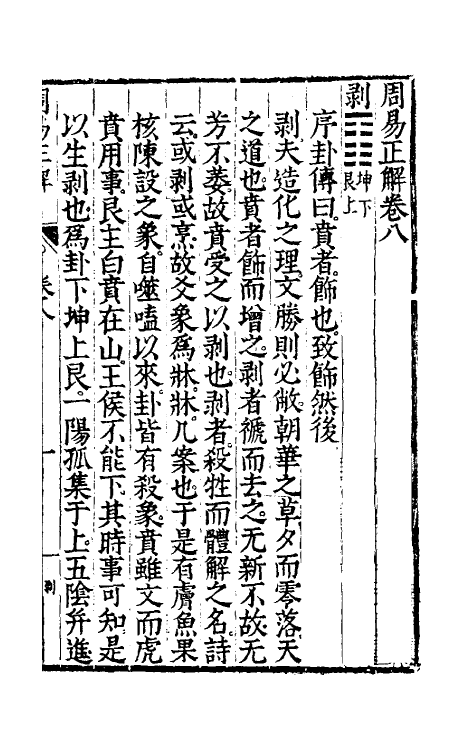 周易正解卷八
剥䷖坤下艮上
序卦傳曰賁者飾也致飾然後
剥夫造化之理文勝則必敝朝華之草夕而零落天
之道也賁者飾而增之剥者褫而去之无新不故无
芳不萎故賁受之以剥也剥者殺牲而體解之名詩
云或剥或烹故爻象為牀牀几案也于是有膚魚果
核陳設之象自噬嗑以來卦皆有殺象賁雖文而虎
賁用事艮主白賁在山王侯不能下其時事可知是
以生剥也為卦下坤上艮一陽孤集于上五陰并進
周易正解
卷八
一
剥